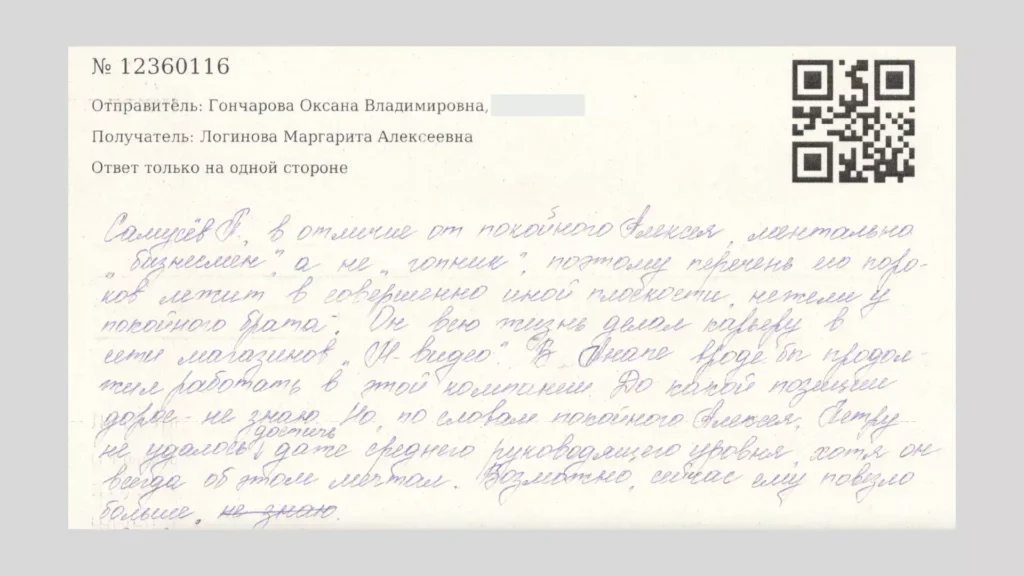 № 12360116
Отправитель: Гончарова Оксана Владимировна,
Получатель: Логинова Маргарита Алексеевна
Ответ только на одной стороне
Самусёв П., в отличие от покойного Алексея, ментально
„бизнесмен", а не „гопник", поэтому перечень его поро-
ков лежит в совершенно иной плоскости, нежели у
покойного брата. Он всю жизнь делал карьеру в
сети магазинов „М-видео". В Анапе вроде бы продол-
жил работать в этой компании. До какой позиции
дорос - не знаю. Но, по словам покойного Алексея, Петру
не удалось достичь даже среднего руководящего уровня, хотя он
всегда об этом мечтал. Возможно, сейчас ему повезло
больше, не знаю.